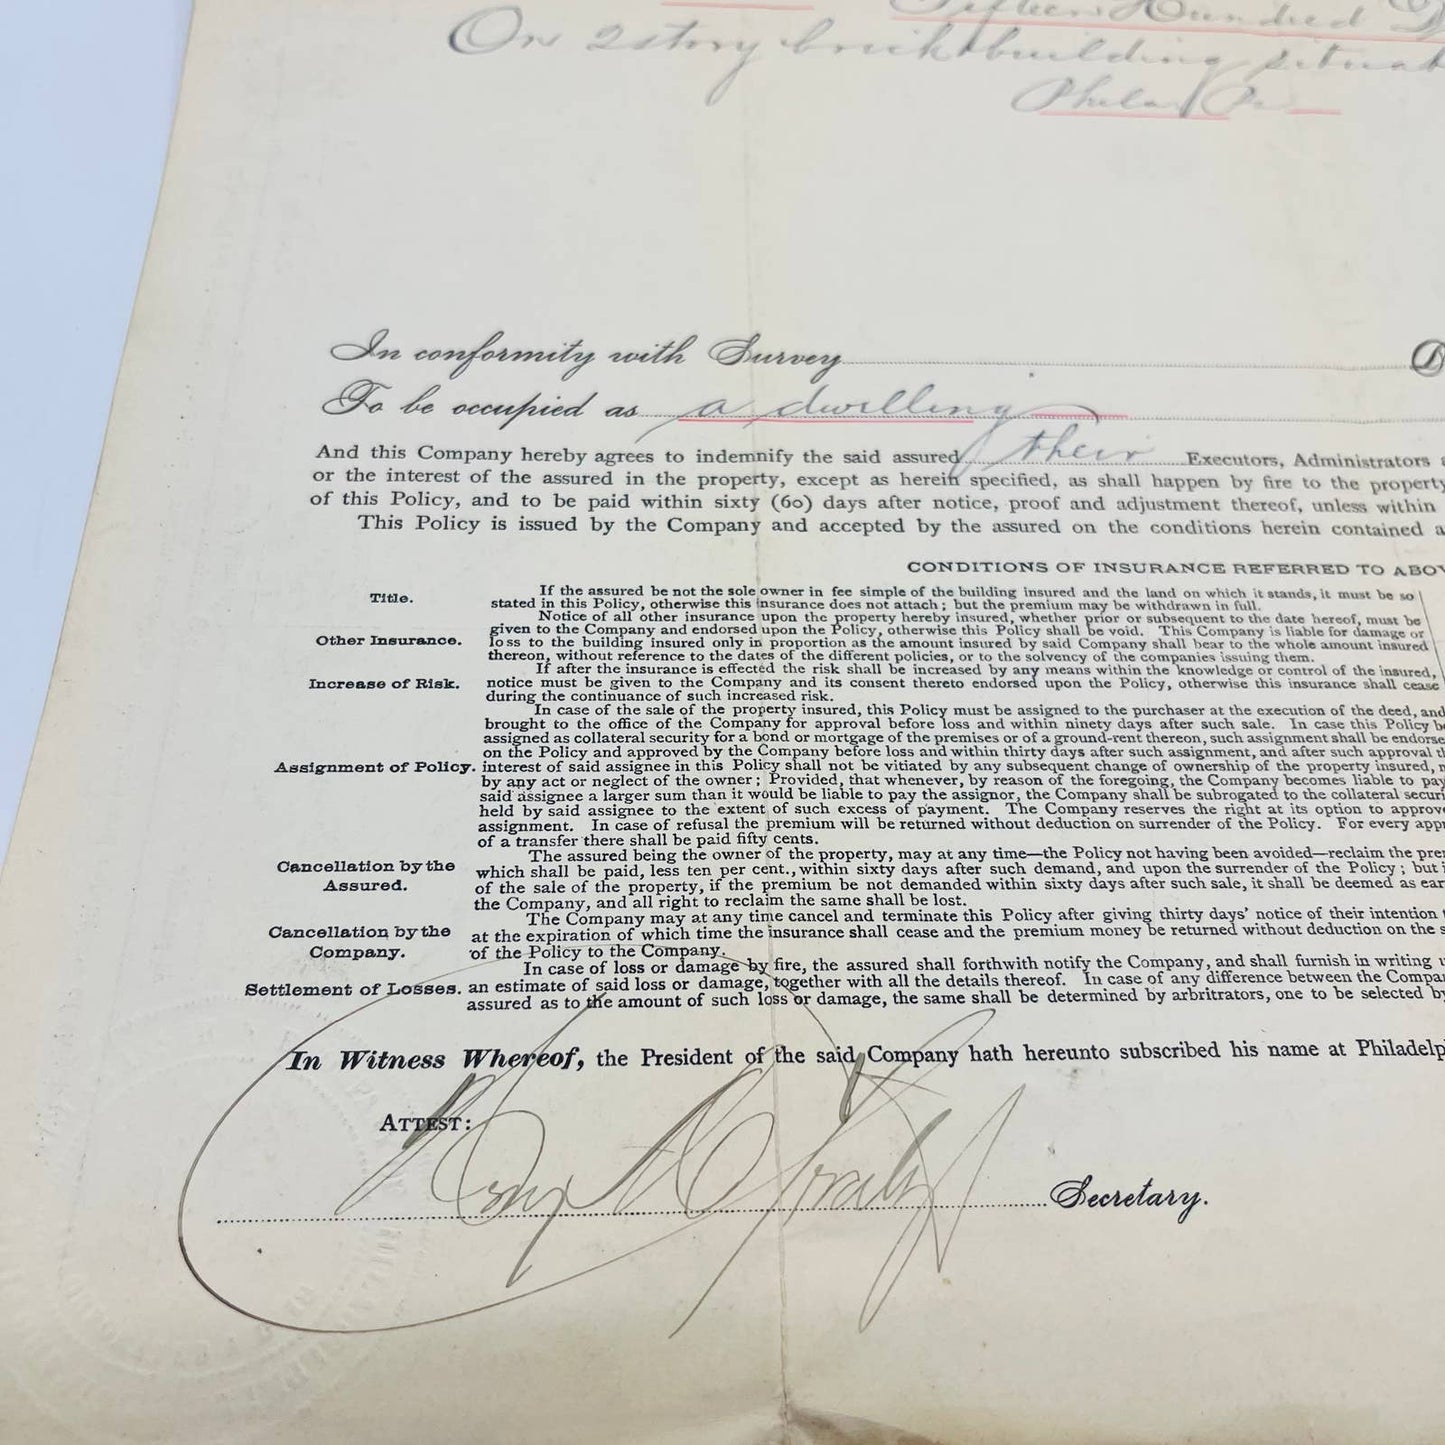 Fifteen Hundred
On 2 story brick building situat
Phila Pa
In conformity with Survey
To be occupied as a dwelling
And this Company hereby agrees to indemnify the said assured their Executors, Administrators
or the interest of the assured in the property, except as herein specified, as shall happen by fire to the property
of this Policy, and to be paid within sixty (60) days after notice, proof and adjustment thereof, unless within
This Policy is issued by the Company and accepted by the assured on the conditions herein contained a
CONDITIONS OF INSURANCE REFERRED TO ABOV
Title. If the assured be not the sole owner in fee simple of the building insured and the land on which it stands, it must be so
stated in this Policy, otherwise this insurance does not attach; but the premium may be withdrawn in full.
Notice of all other insurance upon the property hereby insured, whether prior or subsequent to the date hereof, must be
given to the Company and endorsed upon the Policy, otherwise this Policy shall be void. This Company is liable for damage or
Other Insurance. loss to the building insured only in proportion as the amount insured by said Company shall bear to the whole amount insured
thereon, without reference to the dates of the different policies, or to the solvency of the companies issuing them.
If after the insurance is effected the risk shall be increased by any means within the knowledge or control of the insured,
Increase of Risk. notice must be given to the Company and its consent thereto endorsed upon the Policy, otherwise this insurance shall cease
during the continuance of such increased risk.
In case of the sale of the property insured, this Policy must be assigned to the purchaser at the execution of the deed, and
brought to the office of the Company for approval before loss and within ninety days after such sale. In case this Policy be
assigned as collateral security for a bond or mortgage of the premises or of a ground-rent thereon, such assignment shall be endorse
on the Policy and approved by the Company before loss and within thirty days after such assignment, and after such approval t
Assignment of Policy. interest of said assignee in this Policy shall not be vitiated by any subsequent change of ownership of the property insured,
by any act or neglect of the owner; Provided, that whenever, by reason of the foregoing, the Company becomes liable to pay
said assignee a larger sum than it would be liable to pay the assignor, the Company shall be subrogated to the collateral securi
held by said assignee to the extent of such excess of payment. The Company reserves the right at its option to approv
assignment. In case of refusal the premium will be returned without deduction on surrender of the Policy. For every app
of a transfer there shall be paid fifty cents.
The assured being the owner of the property, may at any time—the Policy not having been avoided—reclaim the pre
Cancellation by the Assured. which shall be paid, less ten per cent., within sixty days after such demand, and upon the surrender of the Policy; but i
of the sale of the property, if the premium be not demanded within sixty days after such sale, it shall be deemed as ear
the Company, and all right to reclaim the same shall be lost.
The Company may at any time cancel and terminate this Policy after giving thirty days' notice of their intention
Cancellation by the Company. at the expiration of which time the insurance shall cease and the premium money be returned without deduction on the s
of the Policy to the Company.
In case of loss or damage by fire, the assured shall forthwith notify the Company, and shall furnish in writing
Settlement of Losses. an estimate of said loss or damage, together with all the details thereof. In case of any difference between the Compan
assured as to the amount of such loss or damage, the same shall be determined by arbritrators, one to be selected by
In Witness Whereof, the President of the said Company hath hereunto subscribed his name at Philadelp
ATTEST:
Secretary.